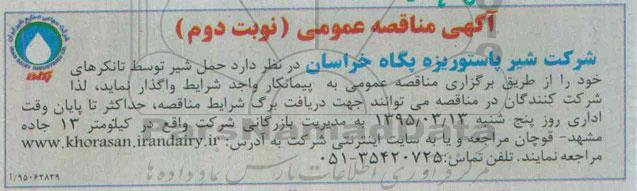 آگهی مناقصه عمومی (نوبت دوم)
شرکت شیر پاستوریزه پگاه خراسان در نظر دارد حمل شیر توسط تانکرهای
خود را از طریق برگزاری مناقصه عمومی به پیمانکار واجد شرایط واگذار نماید، لذا
شرکت کنندگان در مناقصه می توانند جهت دریافت برگ شرایط مناقصه، حداکثر تا پایان وقت
اداری روز پنج شنبه ۱۳۹۵/۰۲/۱۳ به مدیریت بازرگانی شرکت واقع در کیلومتر ۱۳ جاده
مشهد- قوچان مراجعه و یا به سایت اینترنتی شرکت به آدرس: www.khorasan.irandairy.ir
مراجعه نمایند. تلفن تماس: ۳۵۴۲۰۷۲۵-۰۵۱
۱/۹۵۰۶۲۸۳۹
شرکت سهامی صنایع شیر ایران
IRAN DAIRY INDUSTRIES CO.
پگاه
ParsNamadData
مرکز فرآوری اطلاعات پارس نماد داده ها